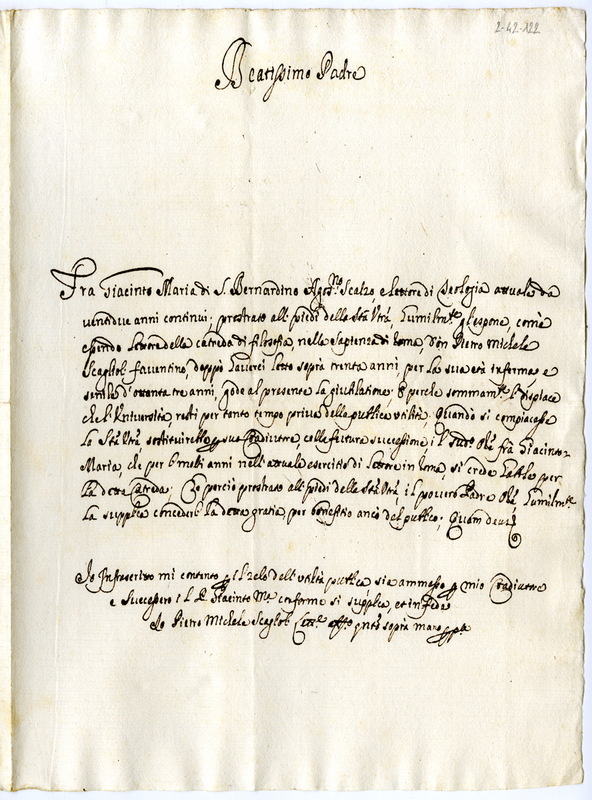 2-42-122
Beatissimo Padre
Fra Giacinto Maria di S. Bernardino Agos.no Scalzo, e lettore di Teologia attuale da
ventidue anni continui; prostrato all' piedi della Stà Vrà, humilm.te l'espone, come
essendo lettore della catreda di filosofia, nella Sapienza di Roma, Don Pietro Michele
Scaglioli faventino, doppo l'averci letto sopra trenta anni, per la sua età inferma e
senile d'ottanta tre anni, gode al presente la giubilatione. E perche sommam.te dispiace
che l'Università, resti per tanto tempo priva della publica utilità, Quando si compiacesse
la Stà Vrà, sostituirello p suo Coadiutore, colla futura successione il sud.o Oré frà Giacinto
Maria, che per li molti anni nell'attuale esercitio di lettore in Roma, si crede habile per
la detta Catreda; Che perciò prostrato all' piedi della Stà Vrà, il povvero Padre Oré humilm.te
la supplica concederli la detta gratia, per beneficio anco del publico; Quam deus
Io Infrascritto mi contento p il zelo dell' utilità publica sia ammesso p mio Coadiutore
e successore il P. Giacinto M.a conforme si supplica, et in fede
Io Pietro Michele Scaglioli mano pp.a